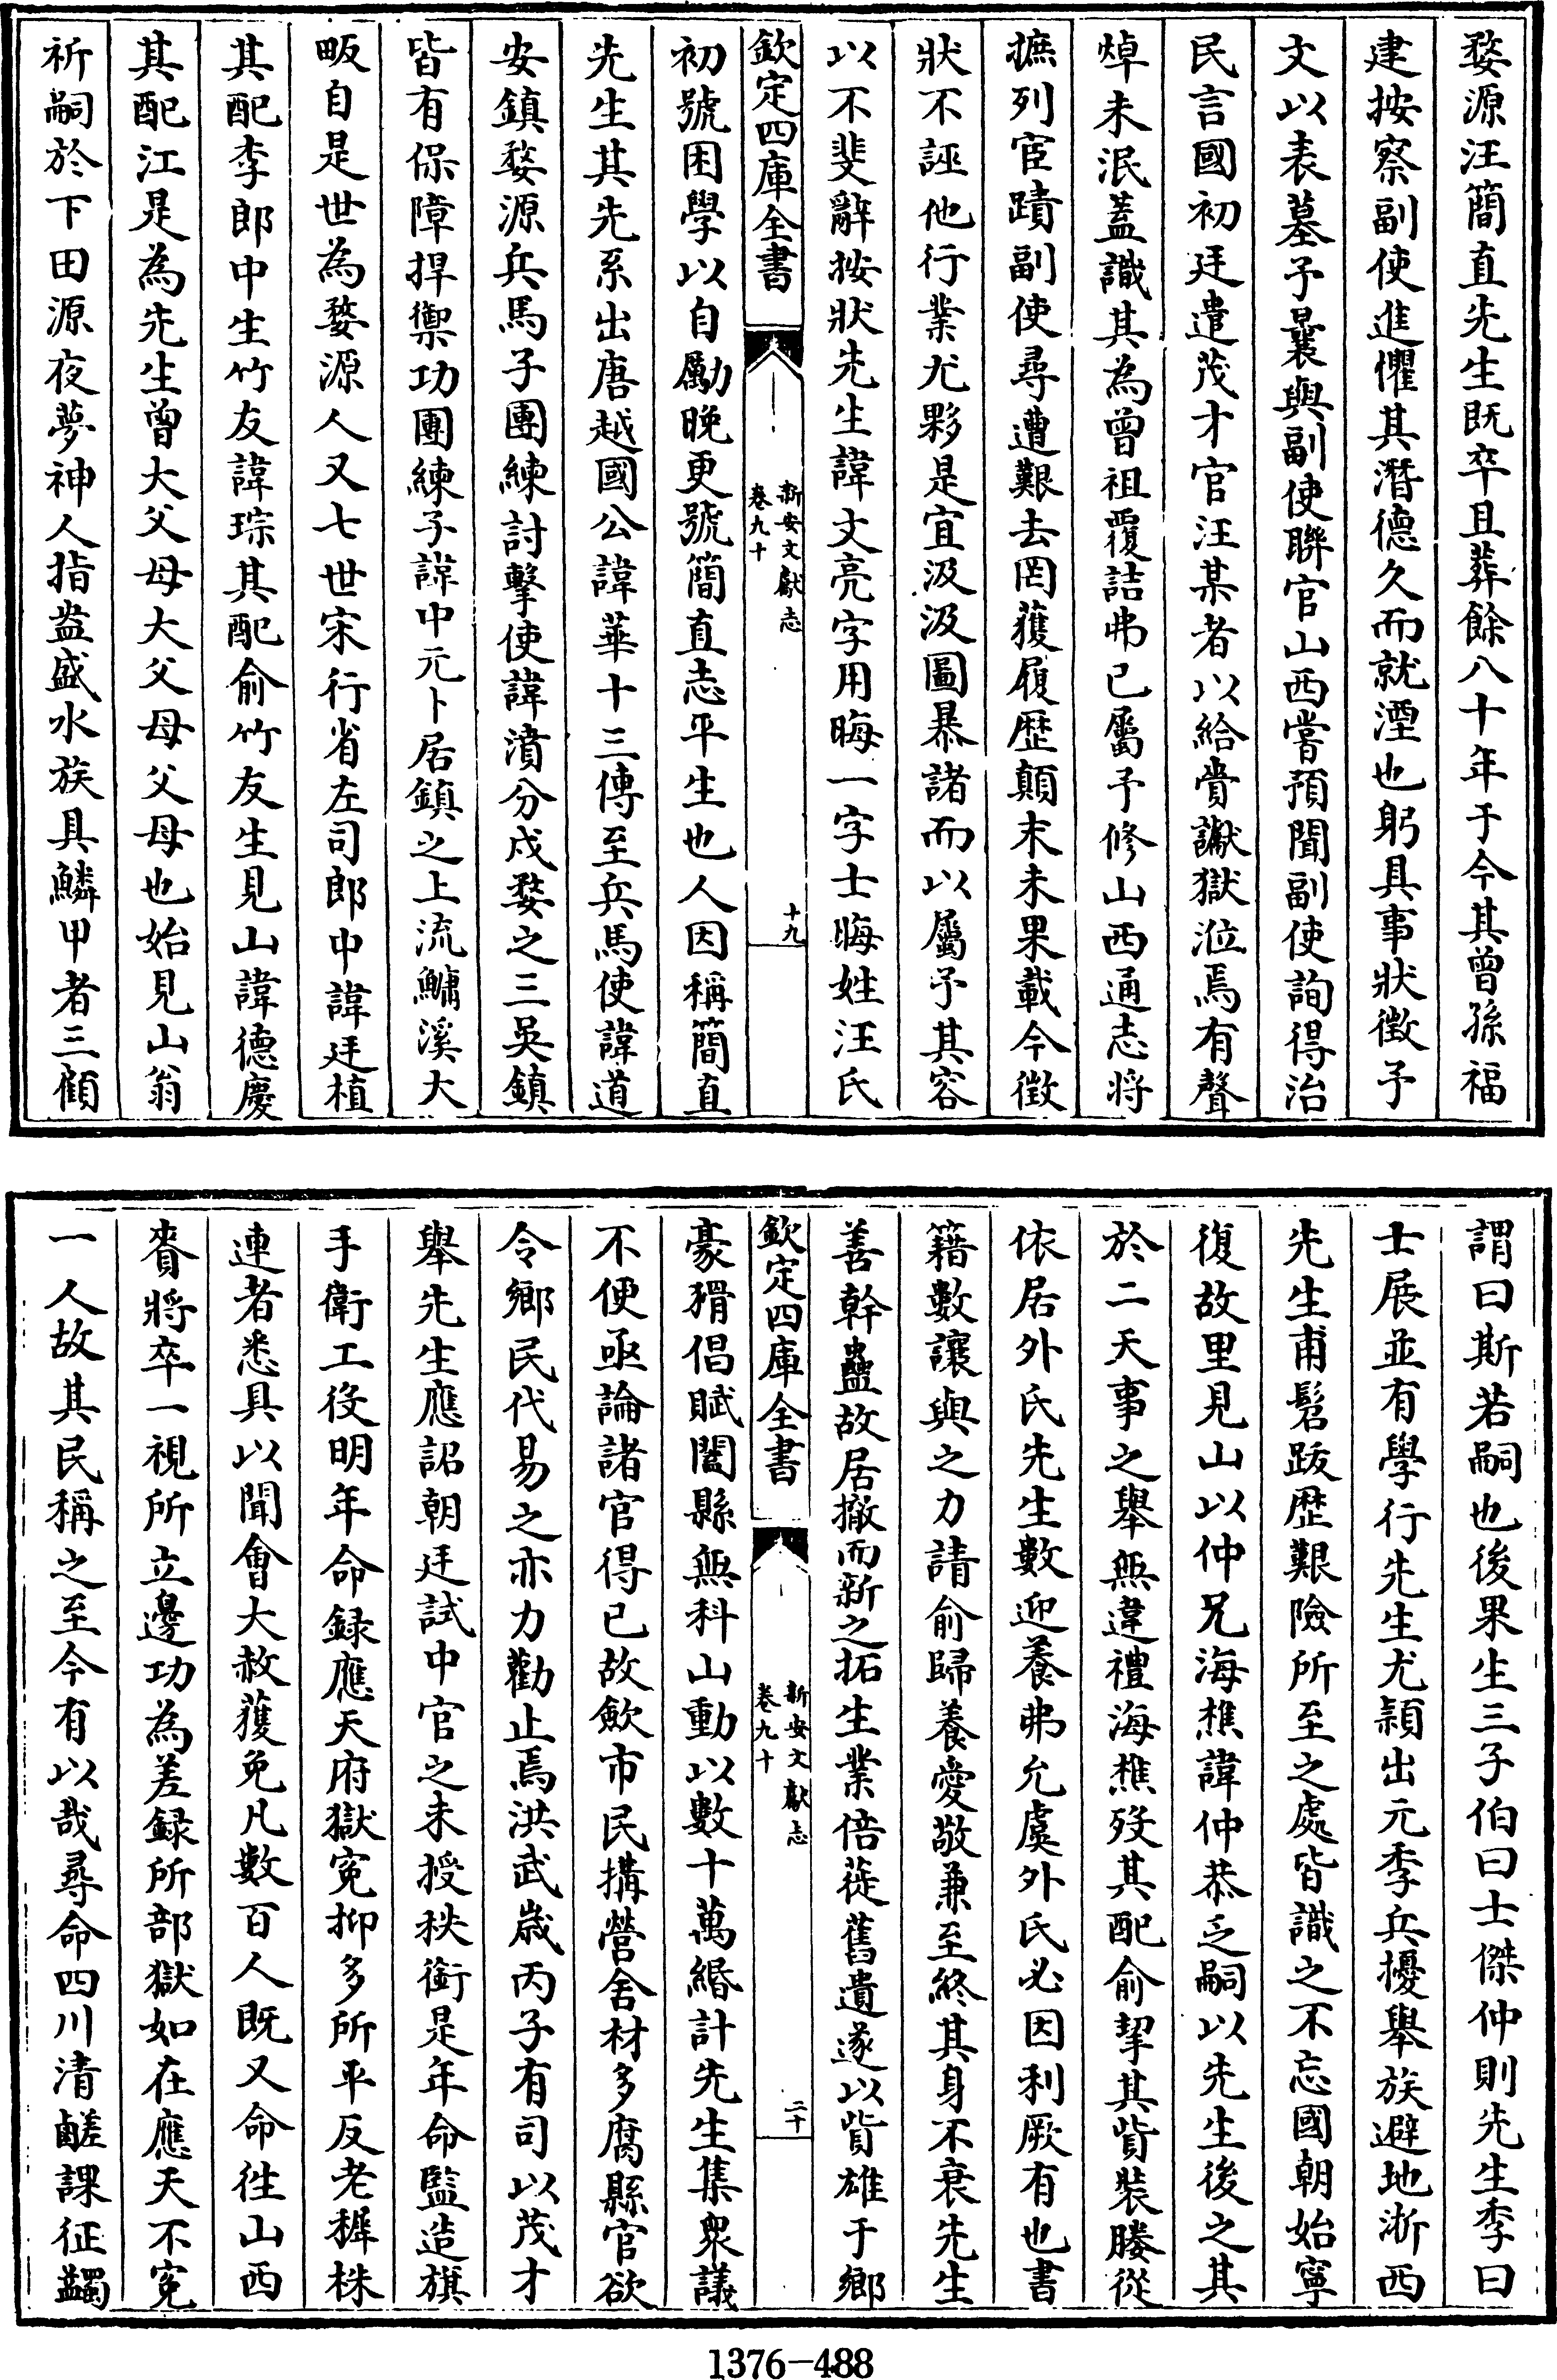 婺源汪簡直先生既卒且葬餘八十年于今其曾孫福
建按察副使進懼其潛德久而就湮也躬具事狀徵予
文以表墓予曩與副使聯官山西嘗預聞副使詢得治
民言國初廷遣茂才官汪某者以給賞讞獄涖焉有聲
焯未泯蓋識其為曾祖覆詰弗已屬予修山西通志将
摭列宦蹟副使尋遭艱去罔獲履歴顛末未果載今徴
狀不誣他行業尤夥是宜汲汲圖暴諸而以屬予其容
以不斐辭按狀先生諱文亮字用晦一字士晦姓汪氏
欽定四庫全書
新安文獻志
卷九十
十九
初號困學以自勵晚更號簡直志平生也人因稱簡直
先生其先系出唐越國公諱華十三傳至兵馬使諱道
安鎮婺源兵馬子團練討擊使諱濆分戍婺之三吳鎮
皆有保障捍禦功團練子諱中元卜居鎮之上流鱅溪大
畈自是世為婺源人又七世宋行省左司郎中諱廷植
其配李郎中生竹友諱琮其配俞竹友生見山諱德慶
其配江是為先生曾大父母大父母父母也始見山翁
祈嗣於下田源夜夢神人指盎盛水族具鱗甲者三顧
謂曰斯若嗣也後果生三子伯曰士傑仲則先生季曰
士展並有學行先生尤頴出元季兵擾舉族避地浙西
先生甫髫跋歴艱險所至之處皆識之不忘國朝始寧
復故里見山以仲兄海樵諱仲恭乏嗣以先生後之其
於二天事之舉無違禮海樵歿其配俞挈其貲裝媵從
依居外氏先生數迎養弗允虞外氏必因利厥有也書
籍數讓與之力請俞歸養愛敬兼至終其身不衰先生
善幹蠱故居撤而新之拓生業倍蓰舊遺遂以貲雄于鄉
欽定四庫全書
新安文獻志
卷九十
二十
豪猾倡賦闔縣無科山動以數十萬緡計先生集衆議
不便亟論諸官得已故歙市民搆營舍材多腐縣官欲
令鄉民代易之亦力勸止焉洪武嵗丙子有司以茂才
舉先生應詔朝廷試中官之未授秩銜是年命監造旗
手衛工役明年命録應天府獄寃抑多所平反老穉株
連者悉具以聞會大赦獲免凡數百人既又命徃山西
賚將卒一視所立邊功為差録所部獄如在應天不寃
一人故其民稱之至今有以哉尋命四川清鹺課征蠲
1376—488